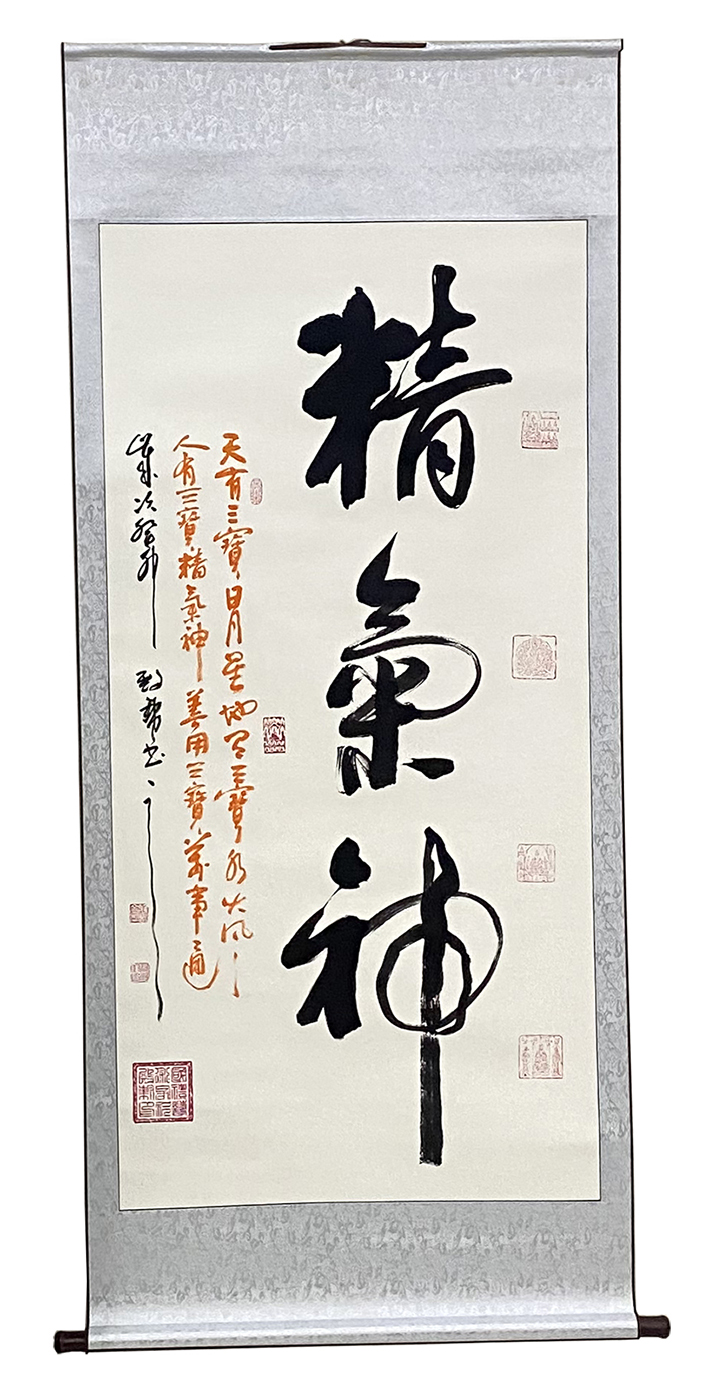 精氣神
天有三寶日月星地有三寶水火風
人有三寶精氣神善用三寶萬事通
歲次癸卯